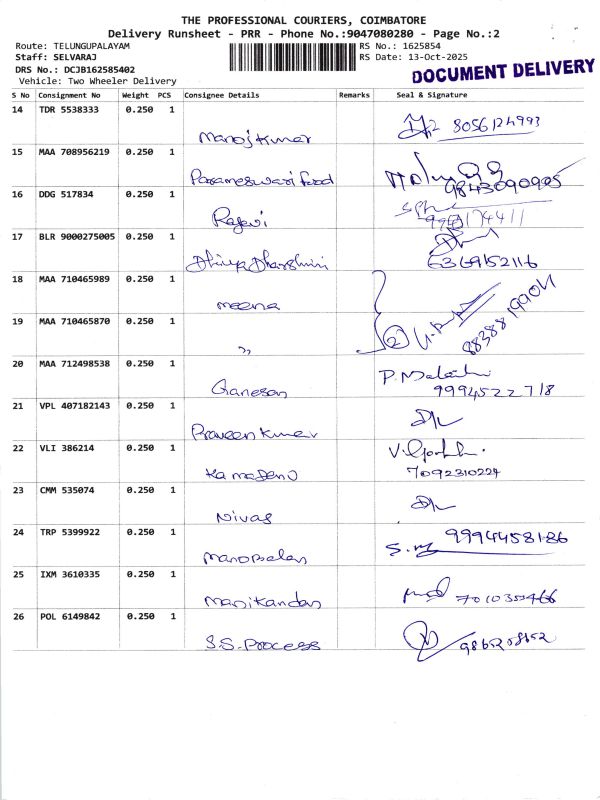 THE PROFESSIONAL COURIERS, COIMBATORE
Delivery Runsheet - PRR - Phone No.:9047080280 - Page No.:2
Route: TELUNGUPALAYAM RS No.: 1625854
Staff: SELVARAJ RS Date: 13-Oct-2025
DRS No.: DCJB162585402 DOCUMENT DELIVERY
Vehicle: Two Wheeler Delivery
S No Consignment No Weight PCS Consignee Details Remarks Seal & Signature
14 TDR 5538333 0.250 1
Manoj Kumar 8056124993
15 MAA 708956219 0.250 1
Parameswari food 9843090905
16 DDG 517834 0.250 1
Rajavi
17 BLR 9000275005 0.250 1
Dhivya Dharshini 6369152116
18 MAA 710465989 0.250 1
meena
19 MAA 710465870 0.250 1
" 2
20 MAA 712498538 0.250 1
Ganesan 9994522718
21 VPL 407182143 0.250 1
Praveen Kumar
22 VLI 386214 0.250 1
Kamadenu 7092310224
23 CMM 535074 0.250 1
Nivas
24 TRP 5399922 0.250 1
Manobalan 9994458186
25 IXM 3610335 0.250 1
Manikandan
26 POL 6149842 0.250 1
S.S. Process